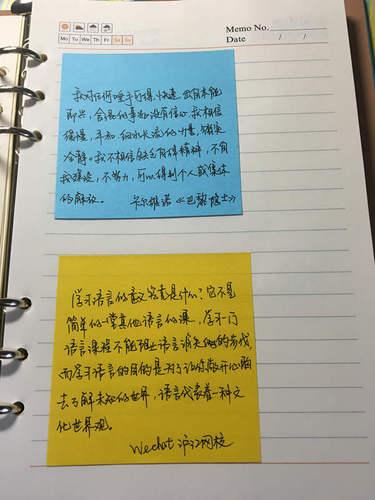 Memo No.
Mo Tu We Th Fr Sa Su
Date / /
我对任何唾手可得,快速,出自本能
即兴,含混的事物没有信心.我相信
缓慢,平和,细水长流的力量,踏实
冷静.我不相信缺乏自律精神,不自
我建设,不努力,可以得到个人或集体
的解放。 卡尔维诺《巴黎隐士》
学习语言的意义究竟是什么?它不是
简单的一堂其他语言的课,学习一门
语言课程不能阻止语言消失的步伐
而学习语言的目的是为了让你敞开心胸
去了解未知的世界,语言代表着一种文
化世界观。
Wechat 沪江网校